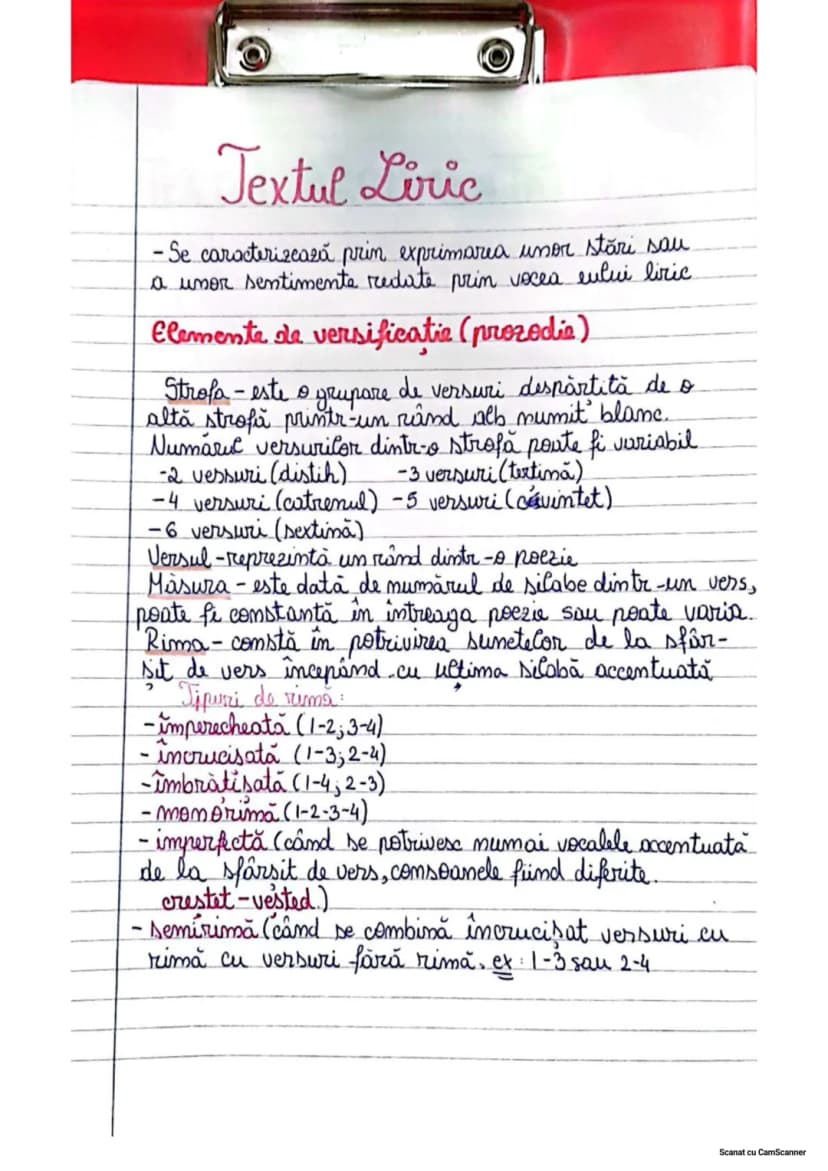 Textul Liric
- Se caracterizează prin exprimarea unor stări sau
a unor sentimente redate prin vocea eului liric
Elemente de versificație (prozodie)
Strofa - este o grupare de versuri despărțită de o
altă strofă printr-un rând alb numit blanc.
Numărul versurilor dintr-o strofă poate fi variabil
-2 versuri (distih) -3 versuri (terțină)
-4 versuri (catrenul) -5 versuri (cvintet)
-6 versuri (sextină)
Versul - reprezintă un rând dintr-o poezie
Măsura - este dată de numărul de silabe dintr-un vers,
poate fi constantă în întreaga poezie sau poate varia.
Rima - constă în potrivirea sunetelor de la sfâr-
șit de vers începând cu ultima silabă accentuată
Tipuri de rimă:
- împerecheată (1-2; 3-4)
- încrucișată (1-3; 2-4)
- îmbrățișată (1-4; 2-3)
- monorimă (1-2-3-4)
- imperfectă (când se potrivesc numai vocalele accentuată
de la sfârșit de vers, consoanele fiind diferite.
creștet-veșted.)
- semirimă (când se combină încrucișat versuri cu
rimă cu versuri fără rimă. ex: 1-3 sau 2-4
Scanat cu CamScanner